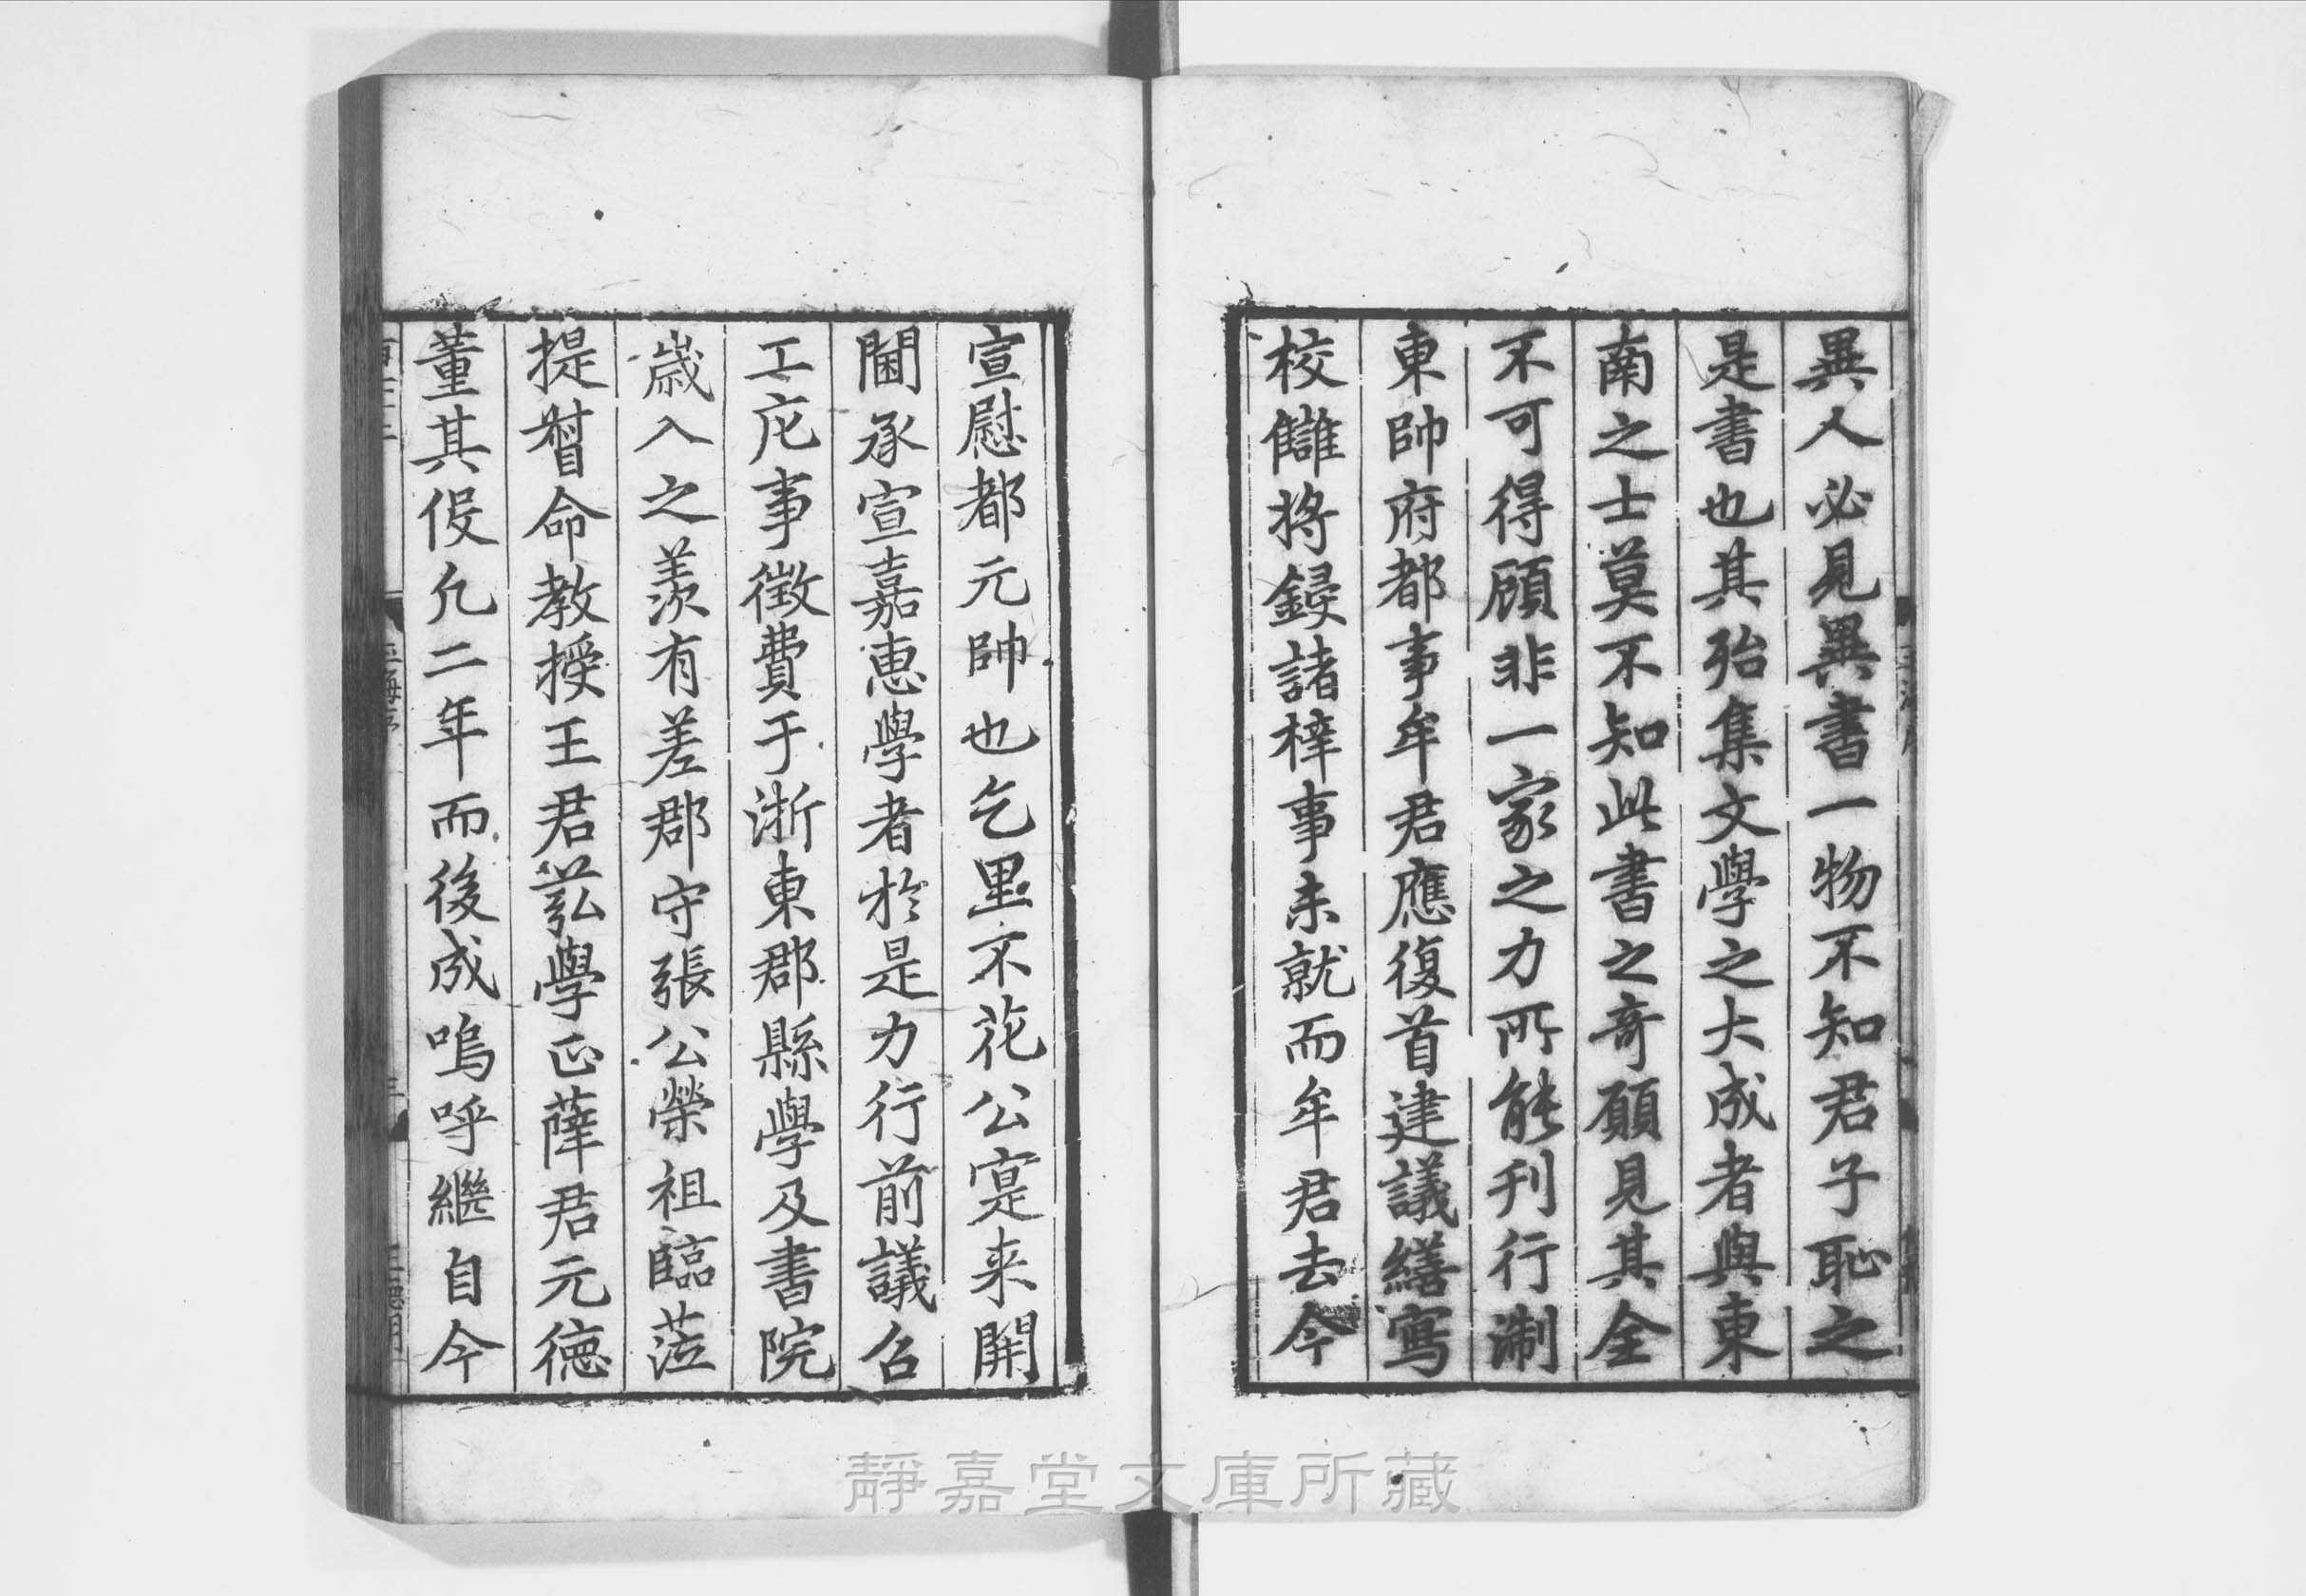 異人必見異書一物不知君子恥之
是書也其殆集文學之大成者與東
南之士莫不知此書之竒願見其全
不可得顧非一家之力所能刊行淛
東帥府都事牟君應復首建議繕寫
校讎將鋟諸梓事未就而牟君去今
宣慰都元帥也乞里不花公寔来開
閫承宣嘉惠學者於是力行前議召
工庀事徴費于浙東郡縣學及書院
歳入之羡有差郡守張公榮祖臨蒞
提督命教授王君𦱤學正薛君元徳
董其役凢二年而後成嗚呼繼自今
靜嘉堂文庫所藏